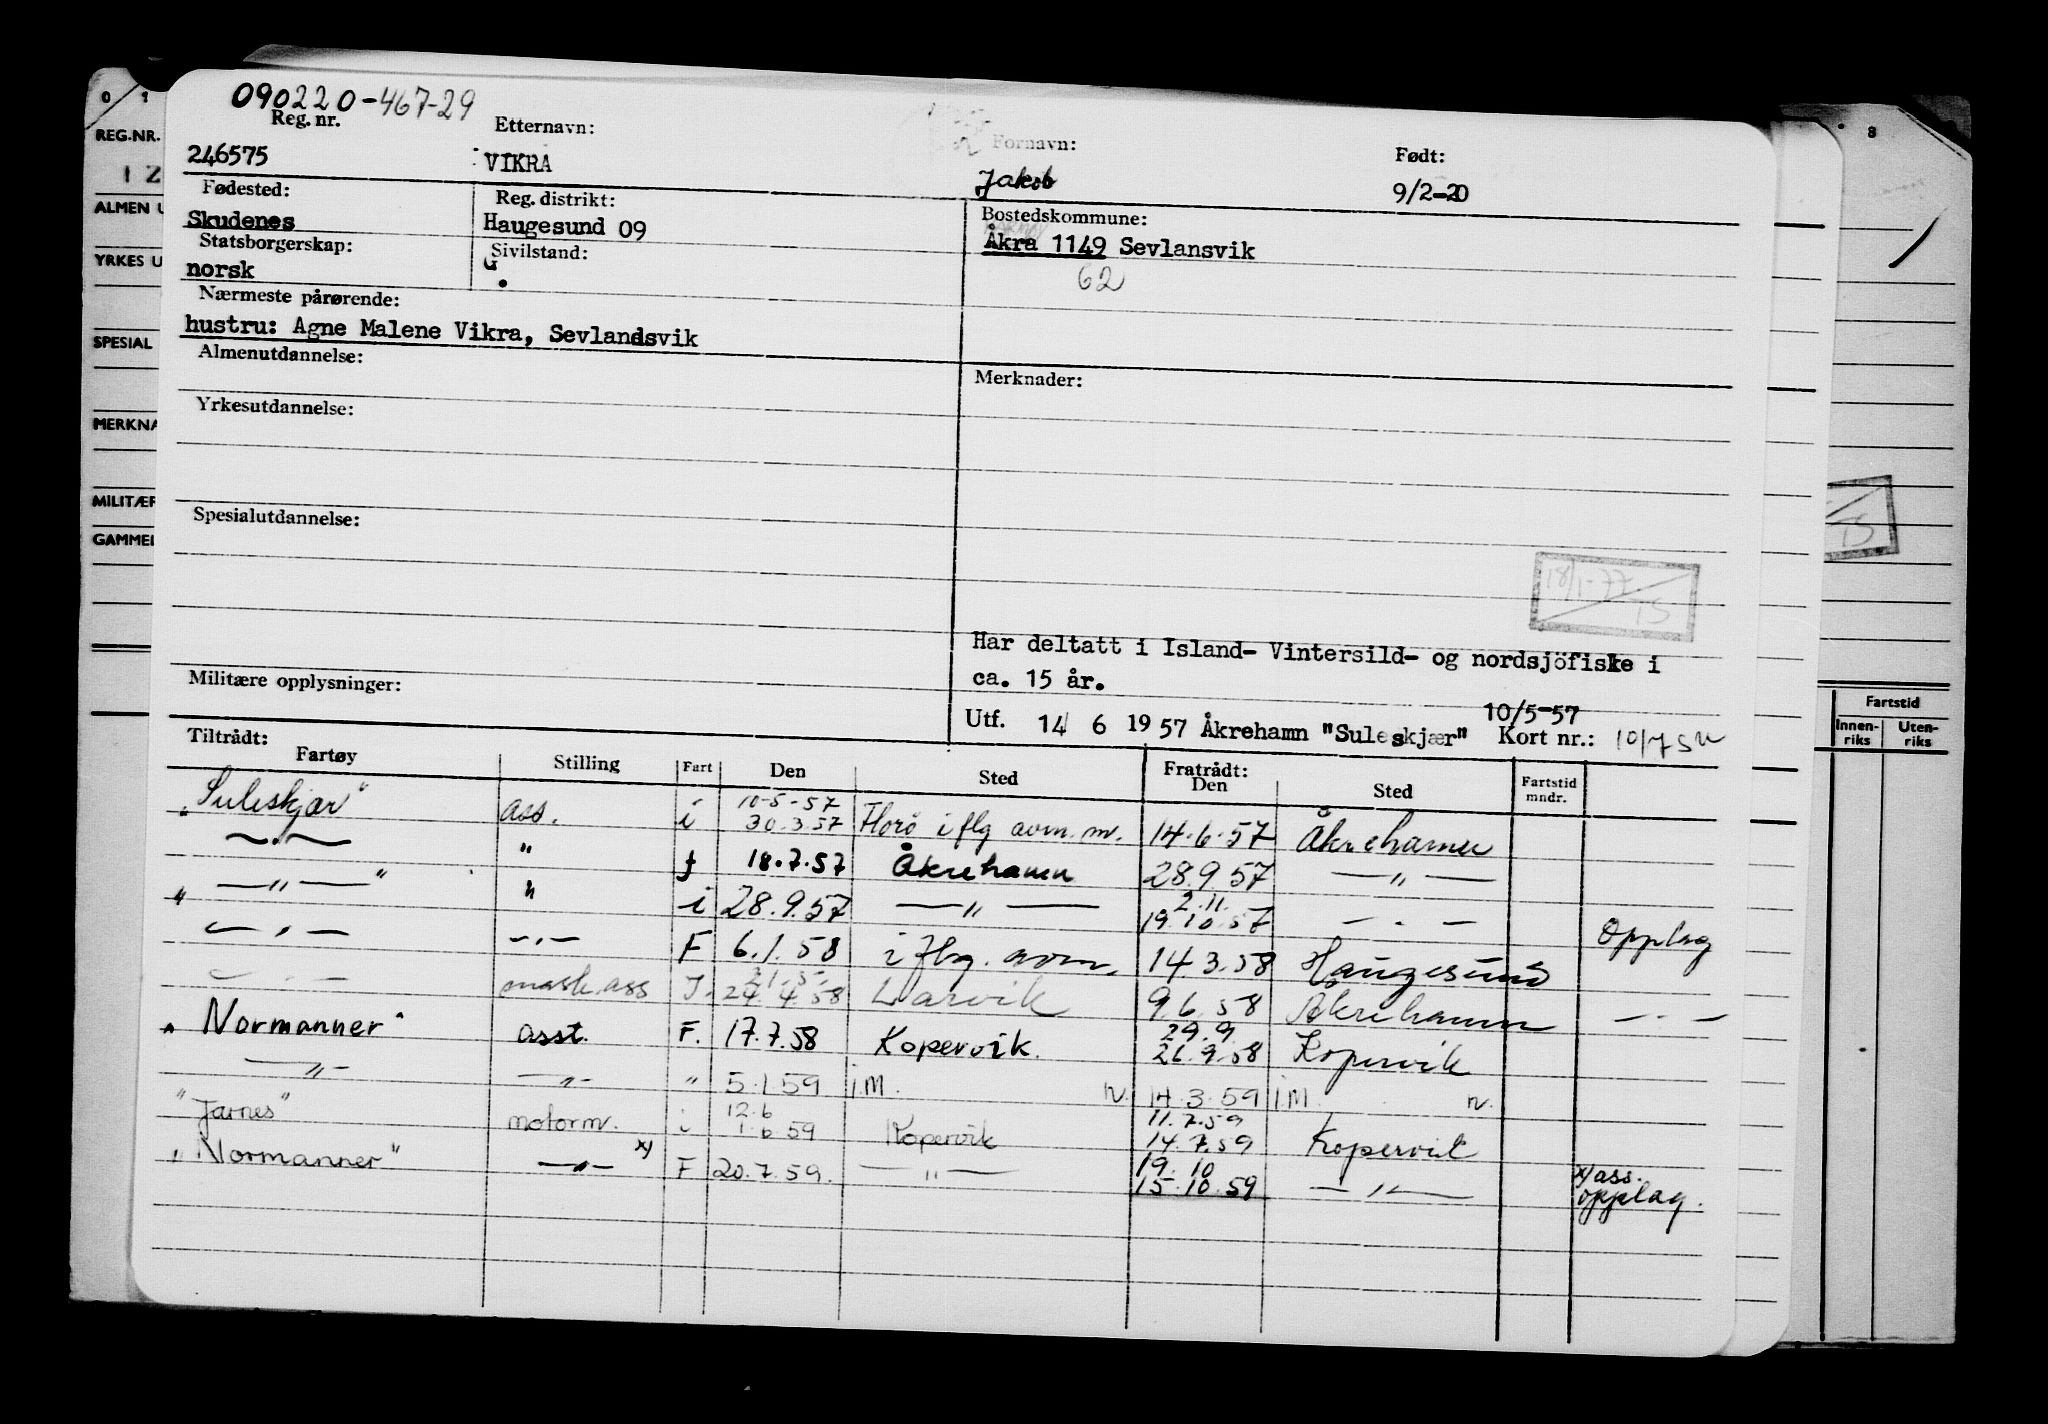 090220-467-29
Reg. nr. Etternavn: Fornavn: Født:
246575 VIKRA Jakob 9/2-20
Fødested: Reg. distrikt: Bostedskommune:
Skudenes Haugesund 09 Åkra 1149 Sevlansvik
62
Statsborgerskap: Sivilstand:
norsk G.
Nærmeste pårørende:
hustru: Agne Malene Vikra, Sevlandsvik
Almenutdannelse: Merknader:
Yrkesutdannelse:
Spesialutdannelse:
18/1-77 TS
Har deltatt i Island- Vintersild- og nordsjöfiske i
ca. 15 år.
Militære opplysninger:
10/5-57
Utf. 14 6 1957 Åkrehamn "Suleskjær" Kort nr.: 10/7 SN
Tiltrådt: Fratrådt:
Fartøy Stilling Fart Den Sted Den Sted Fartstid mndr.
"Suleskjær" ass. i 10-5-57 30.3.57 Florö iflg avm. m. 14.6.57 Åkrehamn
— . — " f 18.7.57 Åkrehamn 28.9.57 — " —
" — " — " " i 28.9.57 — " — 2.11. 19.10.57 — . — Opplag
— " — — . — F 6.1.58 iflg. avm. 14.3.58 Haugesund
— . — mask.ass I. 21.5. 24.4.58 Larvik 9.6.58 Åkrehamn — . —
"Normanner" asst. F. 17.7.58 Kopervik. 29.9. 26.9.58 Kopervik
— " — — " — " 5.1.59 i.M. n. 14.3.59 i.M. n.
"Jarnes" motorm. i 12.6 1.6.59 Kopervik 11.7.59 14.7.59 Kopervik
"Normanner" — " — x) F 20.7.59. — " — 19.10 15.10.59 — " — x) ass. opplag.
REG.NR.
ALMEN U
YRKES U
SPESIAL
MERKNA
MILITÆR
GAMMEL
8
TS
Fartstid
Innen-riks Uten-riks